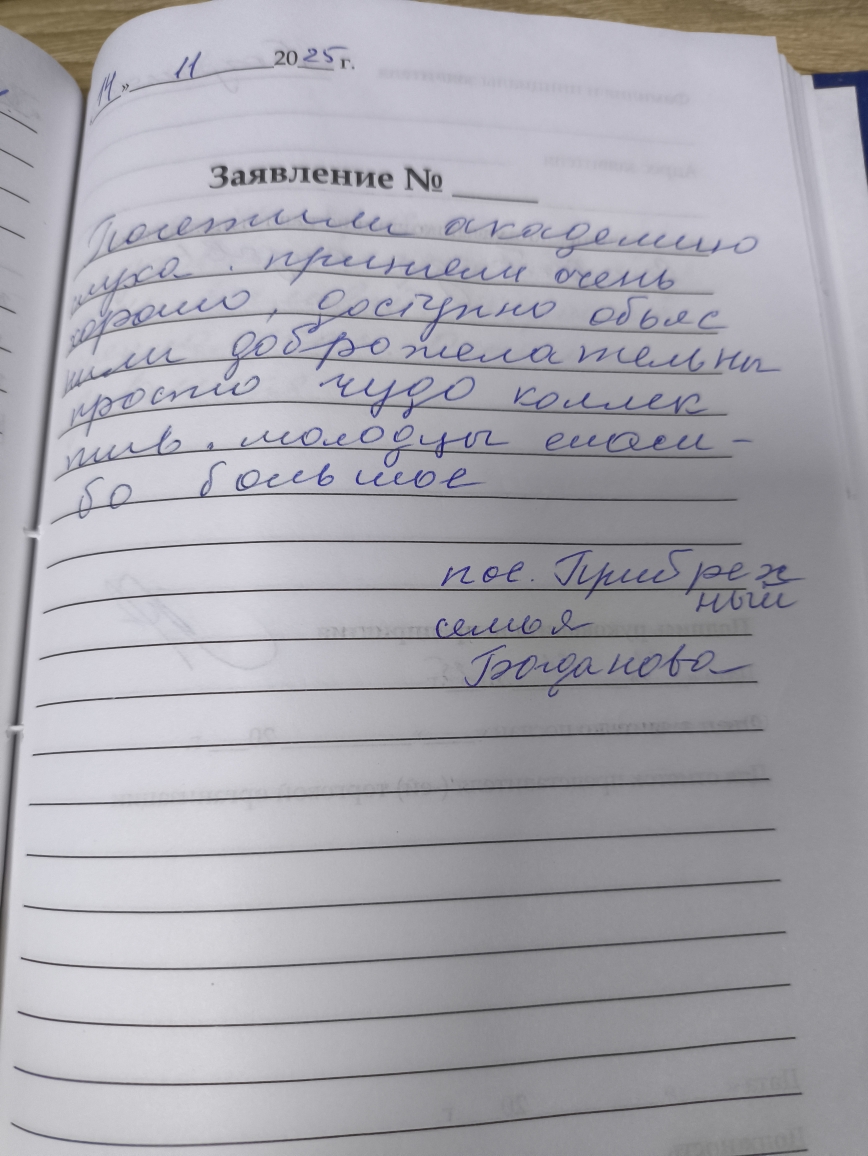 14 » 11 2025 г.
Заявление № ______
Посетили академию
слуха. приняли очень
хорошо, доступно обьяс
нили доброжелательны
просто чудо коллек
тив. молодцы спаси-
бо большое
пос. Прибреж
ный
семья
Богданова